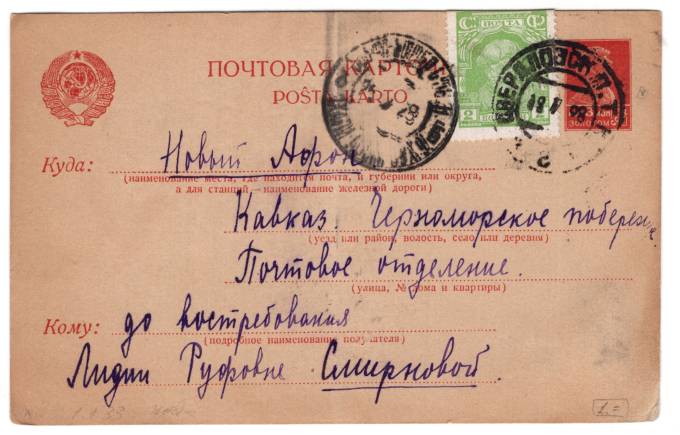 ПОЧТОВАЯ КАРТО
POŜTA KARTO
ПОЧТА
2
СВЕРДЛОВСК
28
Куда: Новый Афон
(наименование места, где находится почта, и губернии или округа,
а для станций—наименование железной дороги)
Кавказ. Черноморское побереж
(уезд или район, волость, село или деревня)
Почтовое отделение.
(улица, № дома и квартиры)
Кому: до востребования
(подробное наименование получателя)
Лидии Руфовне Смирновой.